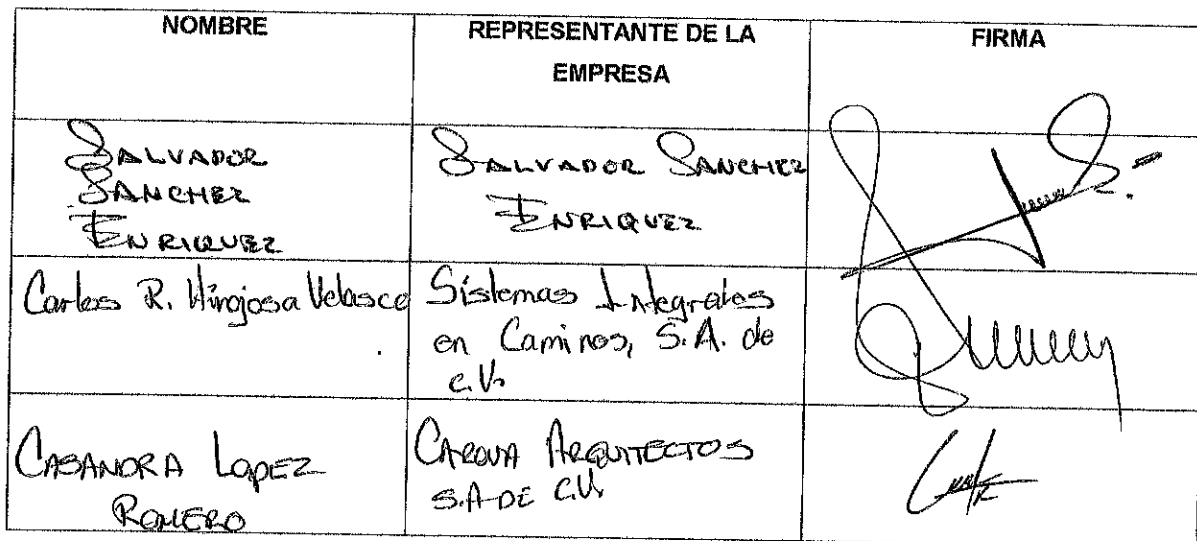 NOMBRE
REPRESENTANTE DE LA
EMPRESA
FIRMA
SALVADOR
SANCHEZ
ENRIQUEZ
SALVADOR SANCHEZ
ENRIQUEZ
Carlos R. Hinojosa Velasco
Sistemas Integrales
en Caminos, S.A. de
C.V.
CASANDRA LOPEZ
ROMERO
ARQUITECTOS
S.A DE C.V.